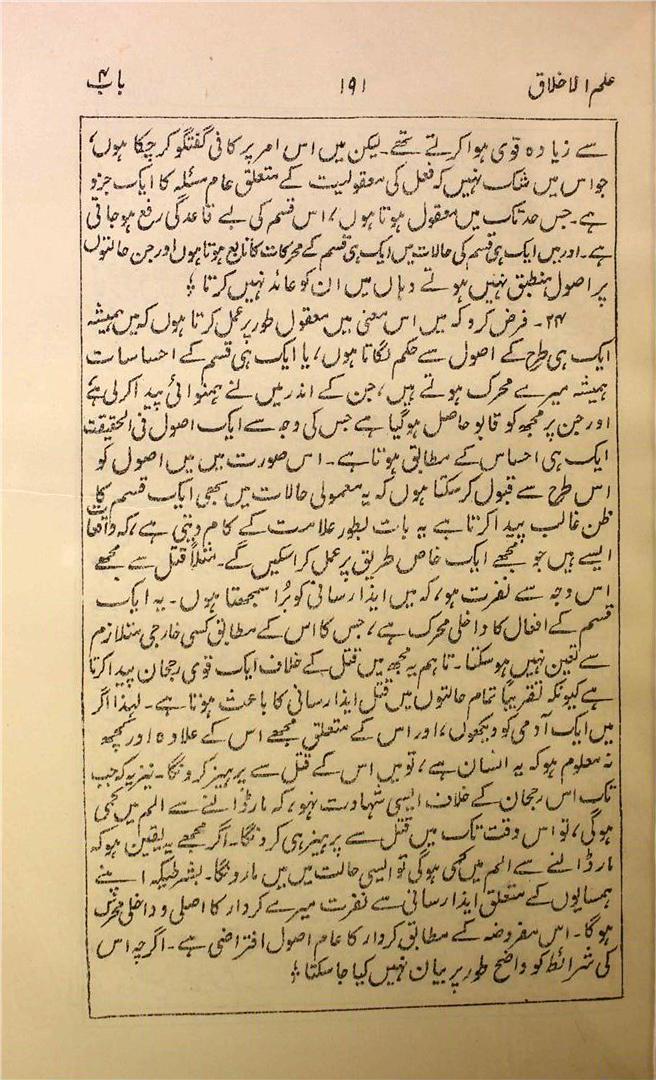 علم الاخلاق ۱۹۱ باب ۴
سے زیادہ قوی ہوا کرتے تھے۔ لیکن میں اس امر پر کافی گفتگو کر چکا ہوں،
جو اس میں شک نہیں کہ فعل کی معقولیت کے متعلق عام مسئلہ کا ایک جزو
ہے۔ جس حد تک میں معقول ہوتا ہوں، اس قسم کی بے قاعدگی رفع ہو جاتی
ہے۔ اور میں ایک ہی قسم کی حالات میں ایک ہی قسم کے محرکات کا تابع ہوتا ہوں اور جن حالتوں
پر اصول منطبق نہیں ہوتے وہاں میں ان کو عائد نہیں کرتا ؛
۲۴۔ فرض کرو کہ میں اس معنی میں معقول طور پر عمل کرتا ہوں کہ میں ہمیشہ
ایک ہی طرح کے اصول سے حکم لگاتا ہوں، یا ایک ہی قسم کے احساسات
ہمیشہ میرے محرک ہوتے ہیں، جن کے اندر میں نے ہمنوائی پیدا کر لی ہے
اور جن پر مجھ کو قابو حاصل ہو گیا ہے جس کی وجہ سے ایک اصول فی الحقیقت
ایک ہی احساس کے مطابق ہوتا ہے۔ اس صورت میں میں اصول کو
اس طرح سے قبول کر سکتا ہوں کہ یہ معمولی حالات میں بھی ایک قسم کا
ظن غالب پیدا کرتا ہے یہ بات بطور علامت کے کام دیتی ہے، کہ واقعات
ایسے ہیں جو مجھے ایک خاص طریق پر عمل کرا سکیں گے۔ مثلاً قتل سے مجھے
اس وجہ سے نفرت ہو، کہ میں ایذا رسانی کو برا سمجھتا ہوں۔ یہ ایک
قسم کے افعال کا داخلی محرک ہے، جس کا اس کے مطابق کسی خارجی متلازم
سے تعین نہیں ہو سکتا۔ تاہم یہ مجھ میں قتل کے خلاف ایک قوی رجحان پیدا کرتا
ہے کیونکہ تقریباً تمام حالتوں میں قتل ایذا رسانی کا باعث ہوتا ہے۔ لہذا اگر
میں ایک آدمی کو دیکھوں، اور اس کے متعلق مجھے اس کے علاوہ اور کچھ
نہ معلوم ہو کہ یہ انسان ہے، تو میں اس کے قتل سے پرہیز کرونگا۔ نیز یہ کہ جب
تک اس رجحان کے خلاف ایسی شہادت نہو، کہ مار ڈالنے سے الم میں کمی
ہوگی، تو اس وقت تک میں قتل سے پرہیز ہی کرونگا۔ اگر مجھے یہ یقین ہو کہ
مار ڈالنے سے الم میں کمی ہوگی تو ایسی حالت میں میں مارونگا۔ بشرطیکہ اپنے
ہمسایوں کے متعلق ایذا رسانی سے نفرت میرے کردار کا اصلی و داخلی محرک
ہوگا۔ اس مفروضہ کے مطابق کردار کا عام اصول افتراضی ہے۔ اگرچہ اس
کی شرائط کو واضح طور پر بیان نہیں کیا جا سکتا ؛